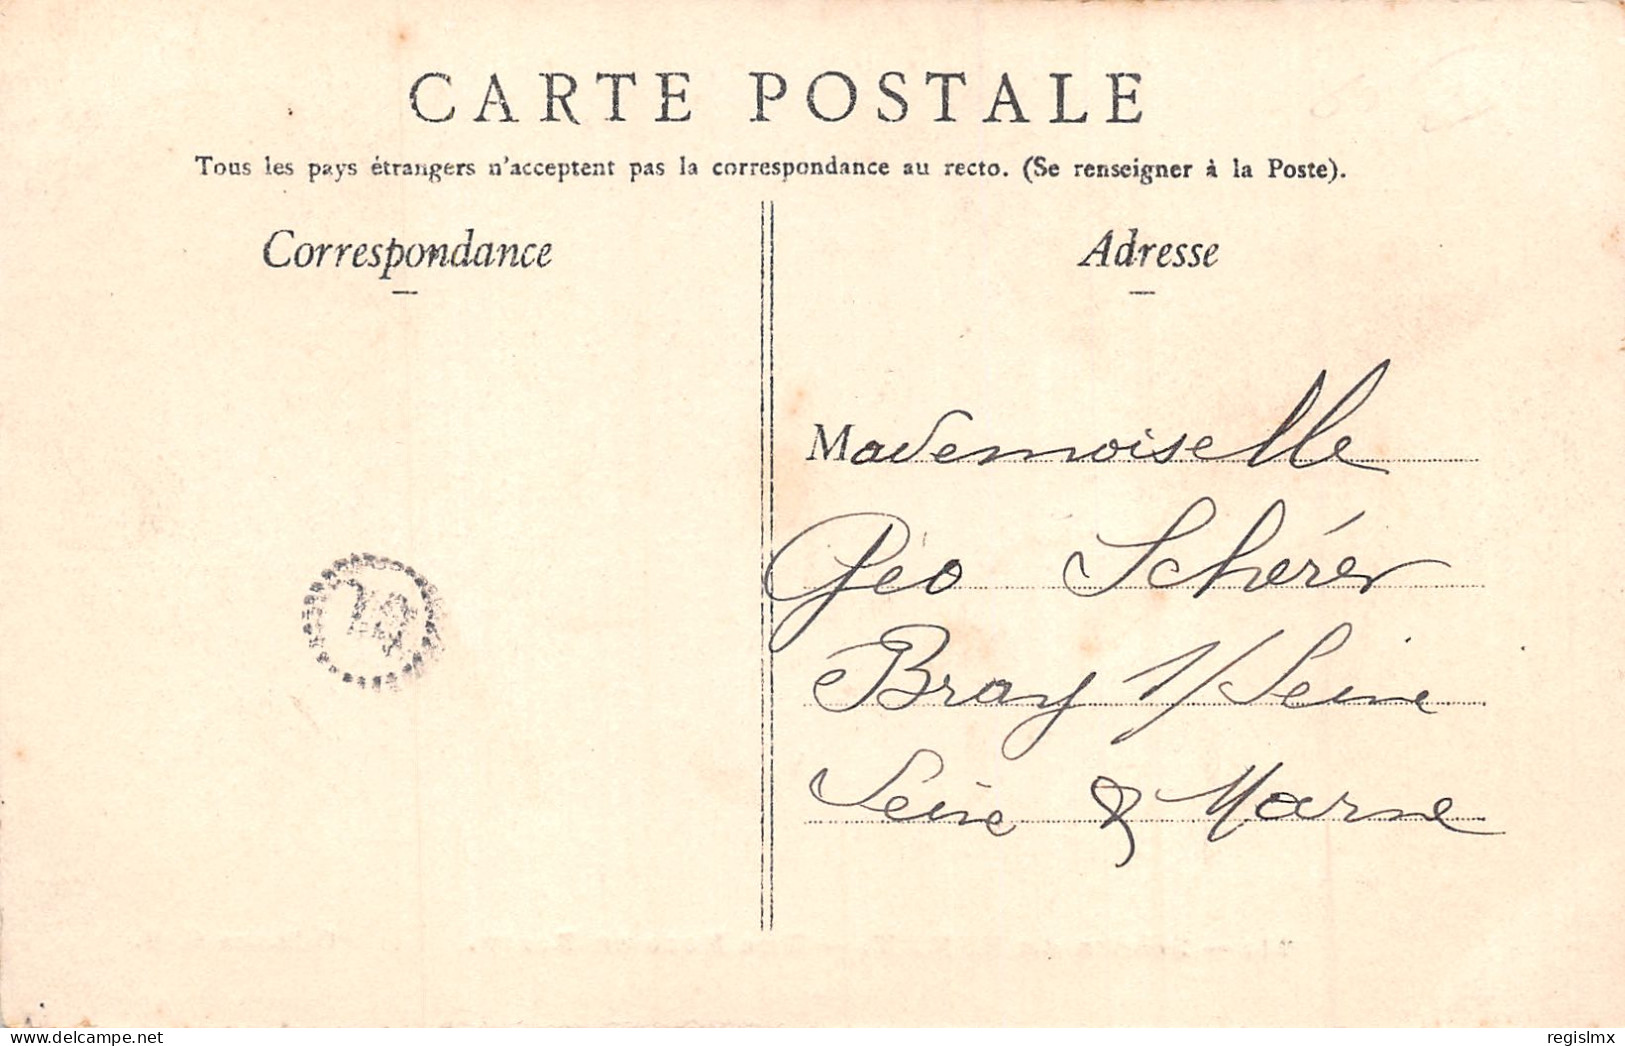 CARTE POSTALE
Tous les pays étrangers n'acceptent pas la correspondance au recto. (Se renseigner à la Poste).
Correspondance
Adresse
Mademoiselle
Géo Schérer
Bray s/Seine
Seine & Marne
delcampe.net
regislmx